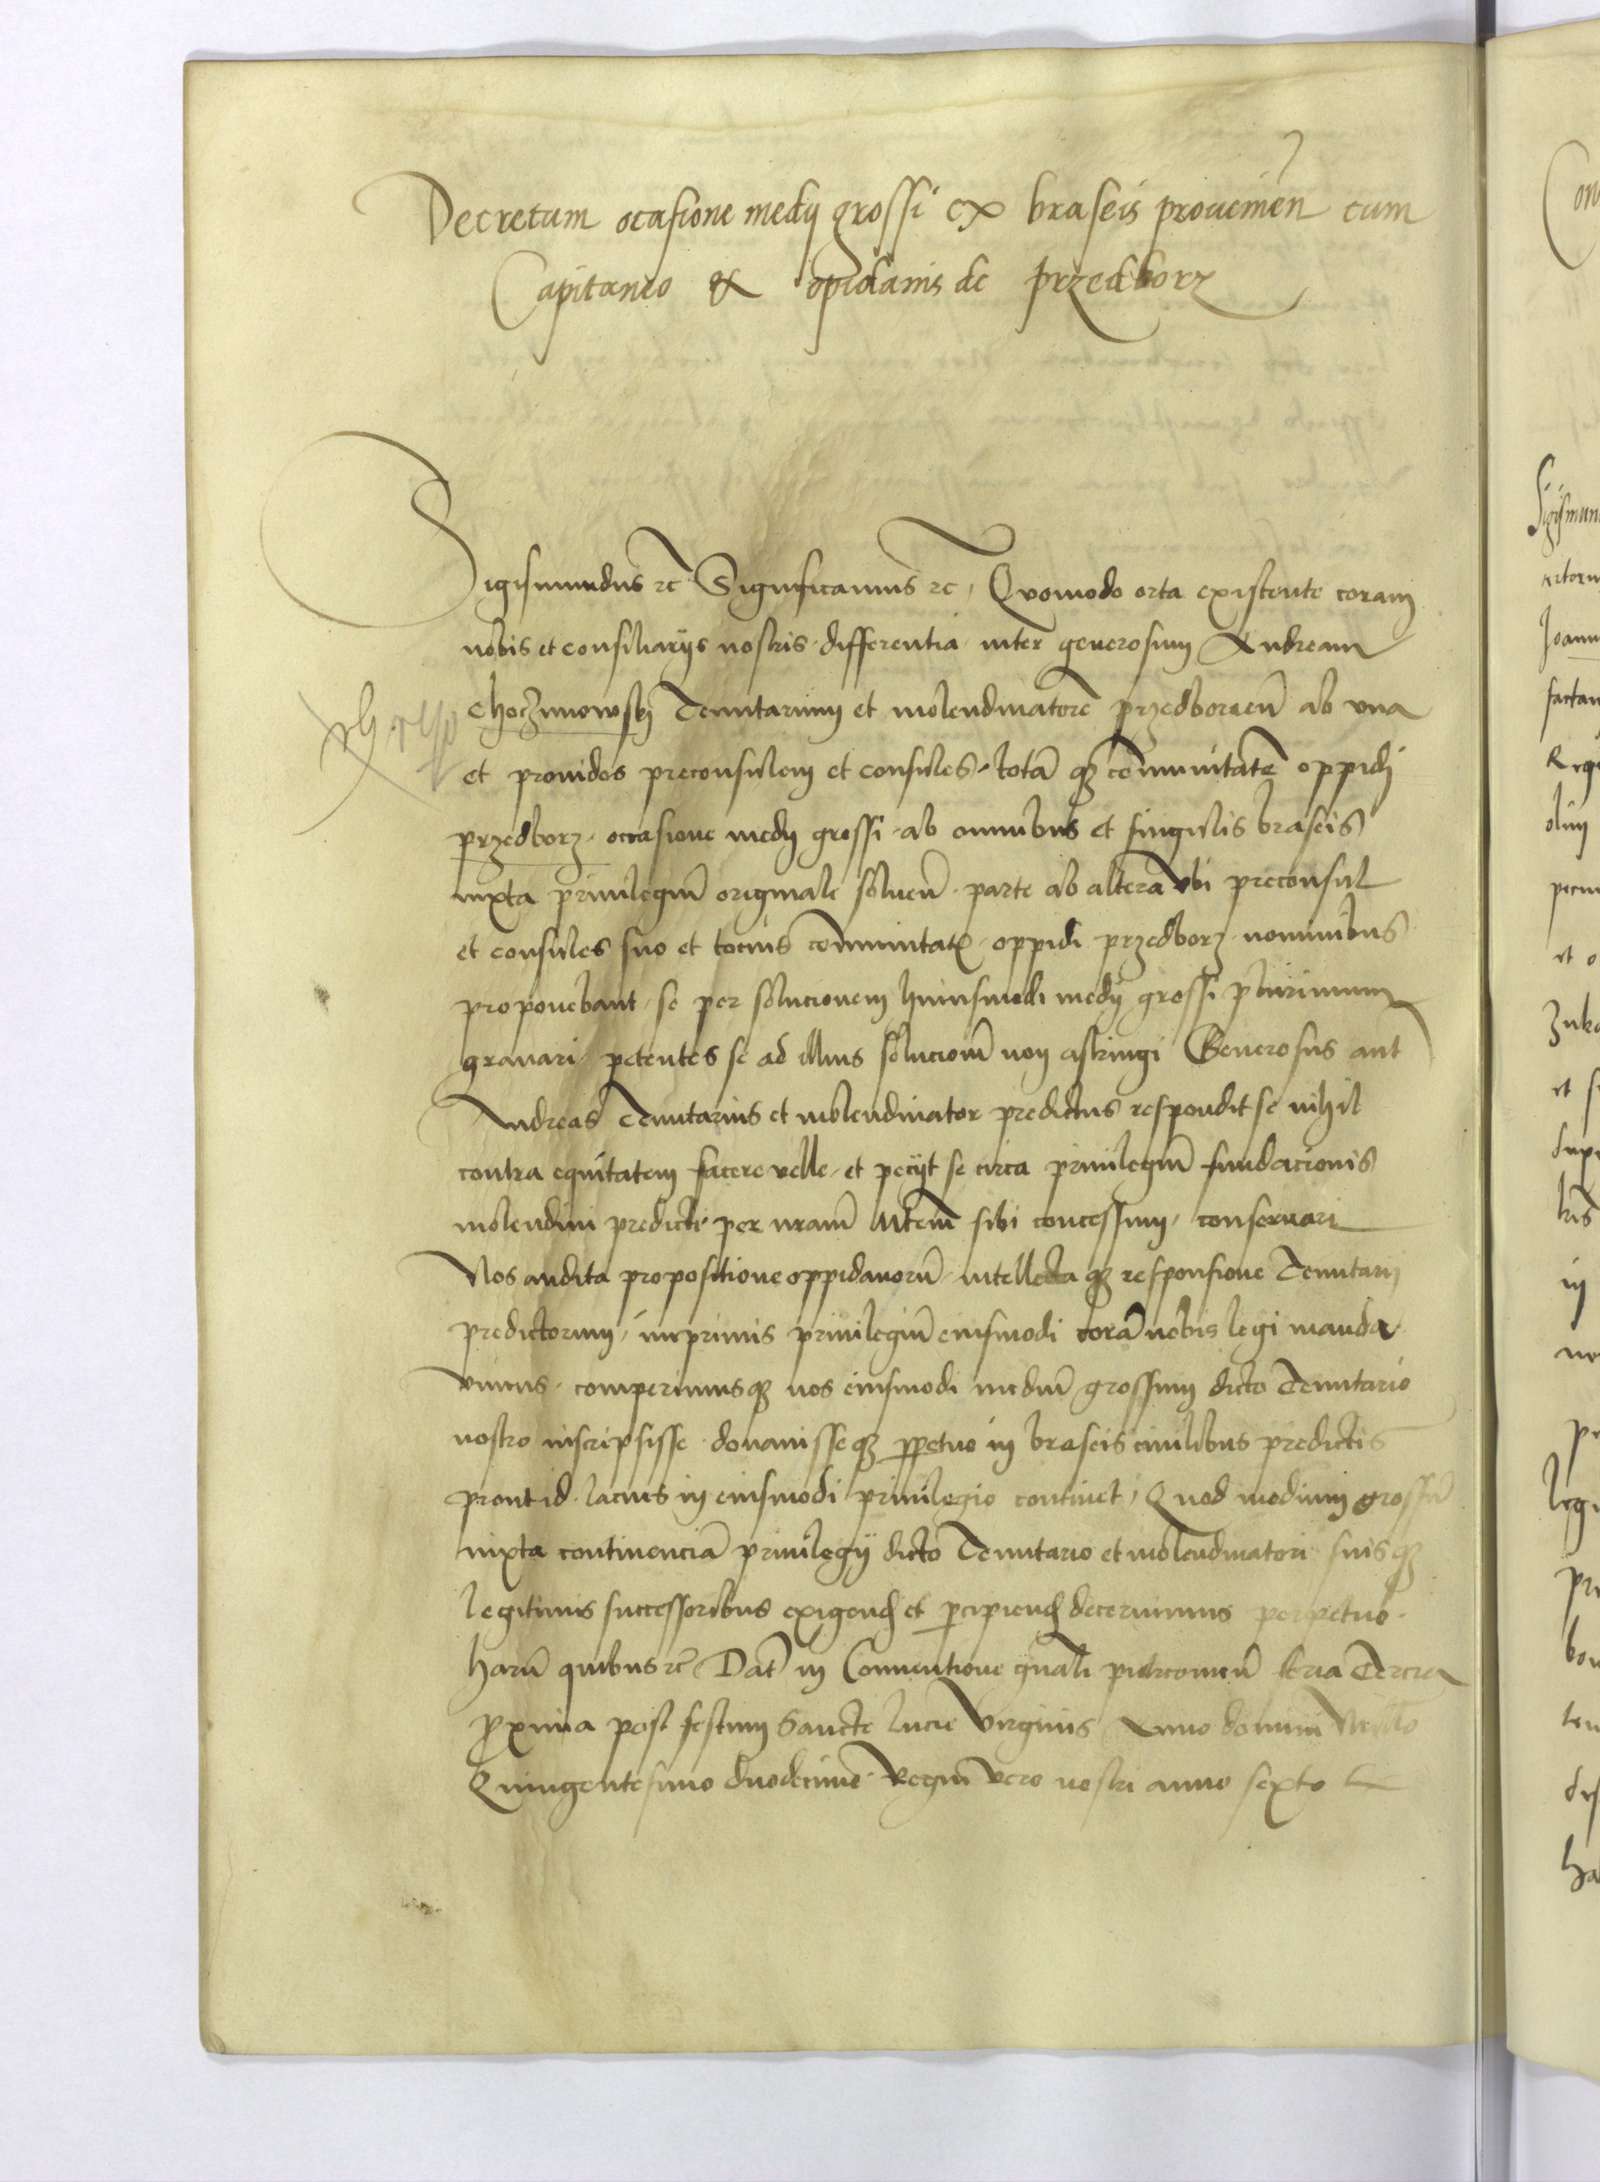 Decretum ocasione medij grossi ex braseis prouenien cum
Capitaneo & opidanis de Przedborz
Sigismundus rc Significamus rc, Quomodo orta existente coram
nobis et consiliarijs nostris differentia inter generosum Andream
Choczimowskj Tenutarium et molendinatorē przedborien̄ ab vna
et prouidos preconsulem et consules totā qȝ cōmunitatē oppidj
przedborz occasione medij grossi ab omnibus et singulis braseis
iuxta priuilegiū originale soluen̄ parte ab altera Vbi preconsul
et consules suo et tocius cōmunitatꝭ oppidi przedborz nominibus
proponebant se per solucionem huiusmodi medij grossi plurimum
grauari petentes se ad illius solucionē non astringi Generosus aut
Andreas Tenutarius et molendinator predictus respondit se nihil
contra equitatem facere velle et pecijt se circa priuilegiū fundacionis
molendini predicti per nram̄ Mtem̄ sibi concessum, conseruari
Nos audita propositione oppidanorū intellecta qȝ responsione Tenutarij
predictorum, inprimis priuilegiū eiusmodi corā nobis legi manda
vimus comperimusqȝ nos eiusmodi mediū grossum dicto Tenutario
nostro inscripsisse donauisseqȝ ꝑpetuo in braseis ciuilibus predictis
prout id lacius in eiusmodi priuilegio continet, Quod medium grossū
iuxta continenciā priuilegij dicto Tenutario et molendinatori suisqȝ
legitimis successoribus exigend et ꝑcipiend decernimus perpetuo
harū quibus rc Dat̄ in Conuentione gn̄ali piotrcouien̄ feria Tercia
ꝓxima post festum Sancte Lucie Virginis Anno domini Mill̄o
Quingentesimo duodecimo Regni vero nostri anno sexto
Con
Sigismun
Joann
factam
Regi
olim
et o
et s
in
pr
legi
pr